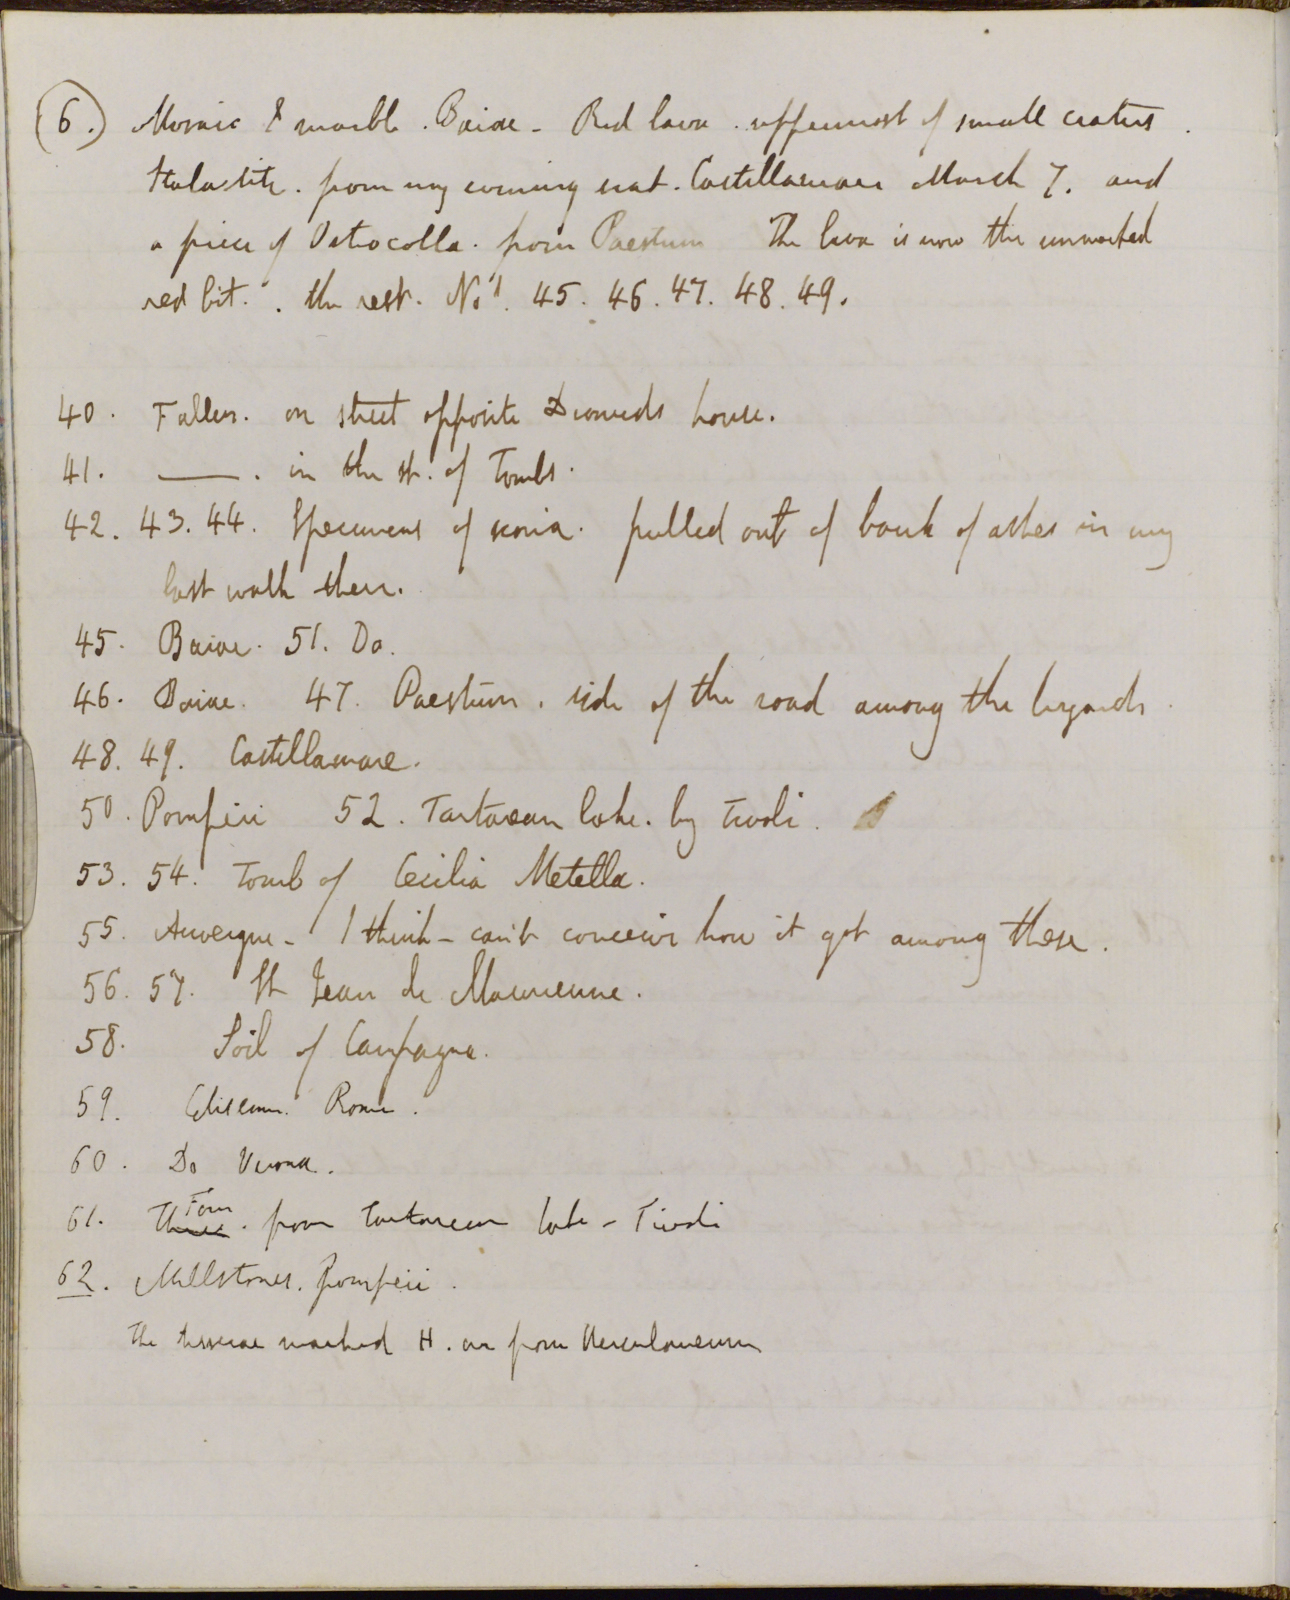 (6.) Mosaic & marble. Baiae - Red lava. uppermost of small craters.
Stalactite. from my evening seat. Castellamare March 7. and
a piece of Osteocolla. from Paestum The lava is now the unmarked
red bit. . the rest. Nos. 45. 46. 47. 48. 49.
40. Fallen. on street opposite Diomeds house.
41. ——. in the st. of Tombs.
42. 43. 44. Specimens of scoria. pulled out of bank of ashes in my
last walk there.
45. Baiae. 51. Do.
46. Baiae. 47. Paestum. side of the road among the lizards.
48. 49. Castellamare.
50. Pompeii 52. Tartarean lake. by Tivoli.
53. 54. Tomb of Cecilia Metella.
55. Auvergne - I think - can't conceive how it got among these.
56. 57. St Jean de Maurienne.
58. Soil of Campagna.
59. Coliseum. Rome.
60. Do Verona.
61. Three Four. from Tartarean lake - Tivoli
62. Millstones. Pompeii.
The tesserae marked H. are from Herculaneum